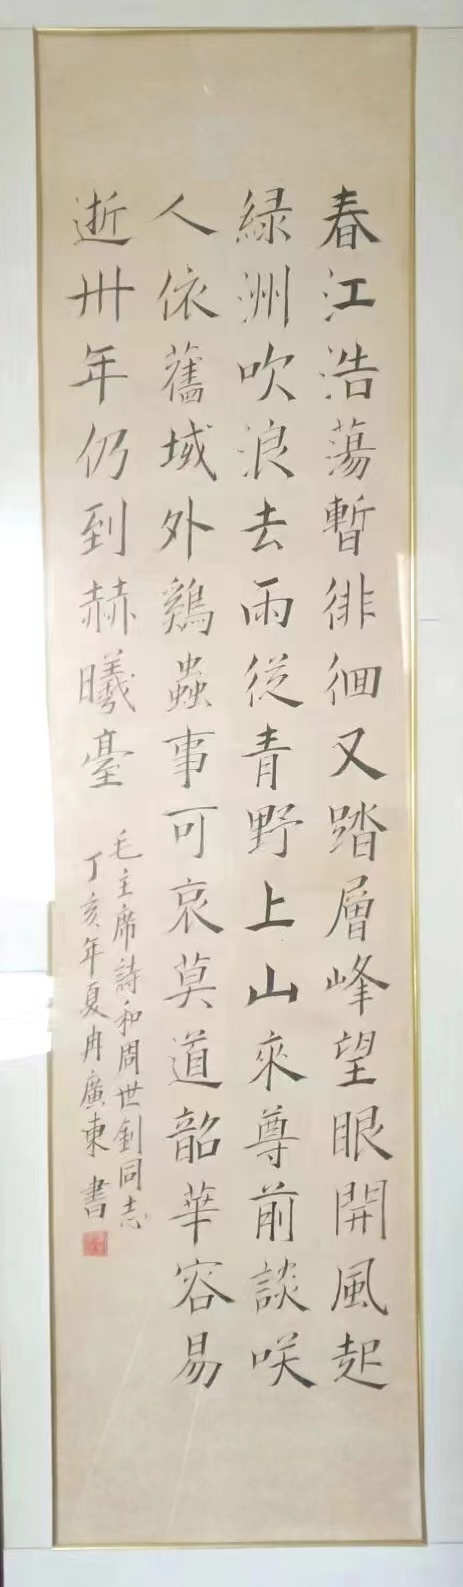 春江浩蕩暫徘徊又踏層峰望眼開風起
綠洲吹浪去雨從青野上山來尊前談咲
人依舊域外鷄蟲事可哀莫道韶華容易
逝卅年仍到赫曦臺
毛主席詩和周世釗同志
丁亥年夏冉廣東書